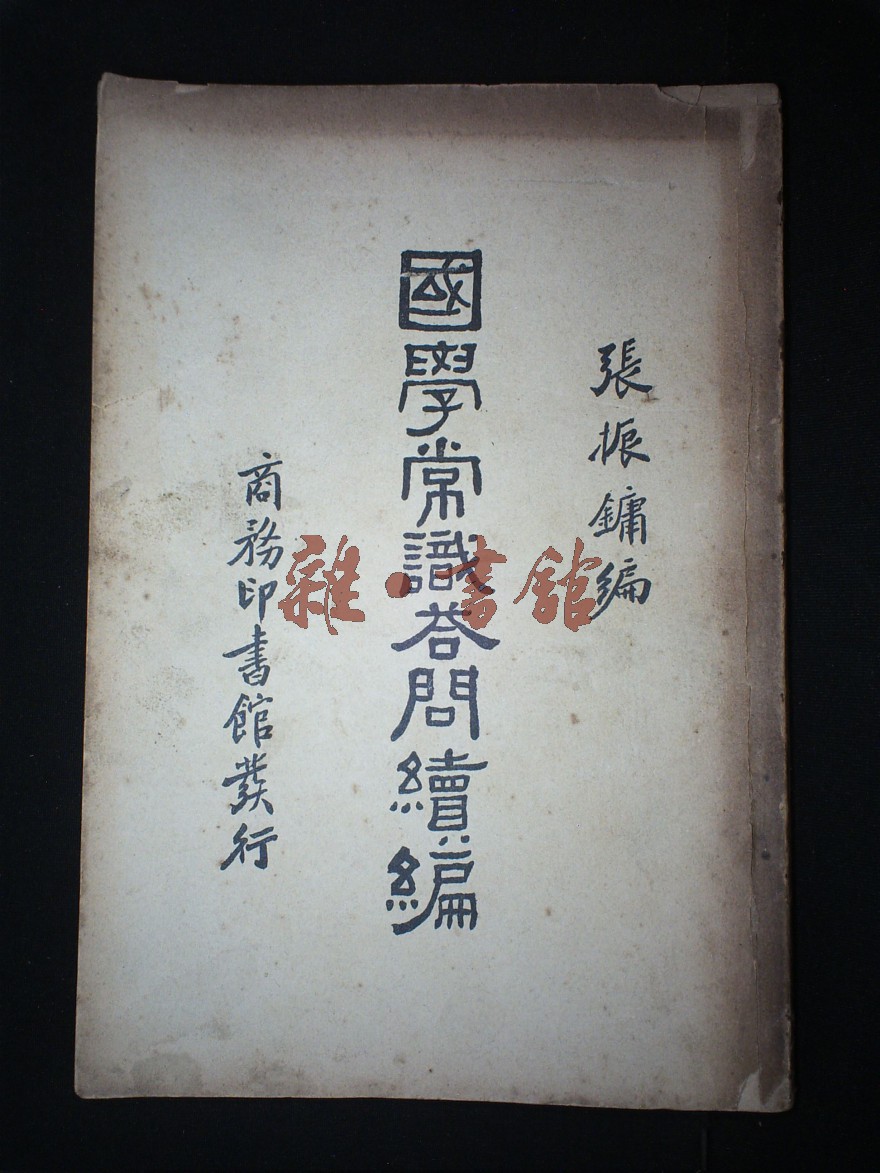 張振鏞編
國學常識荅問續編
商務印書館發行
雜·書館